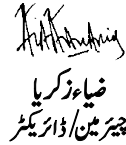 ضیاء زکریا
چیئرمین/ڈائریکٹر